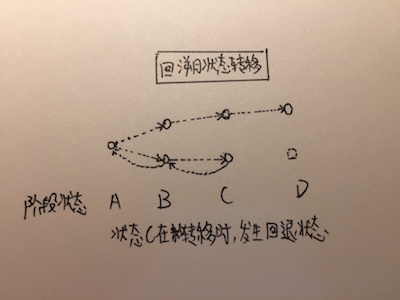 回溯状态转移
阶段状态 A B C D
状态C在转移时,发生回退状态